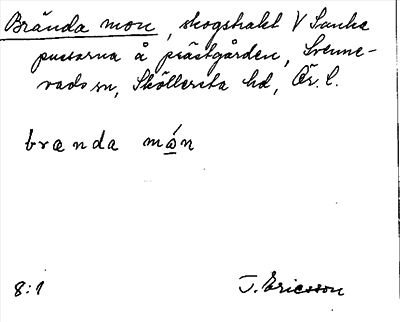 Brända mon, skogstrakt V Sanka
pussarna å prästgården, Svenne-
vads sn, Sköllersta hd, Ör. l.
brænda mǻn
8:1
J. Ericsson